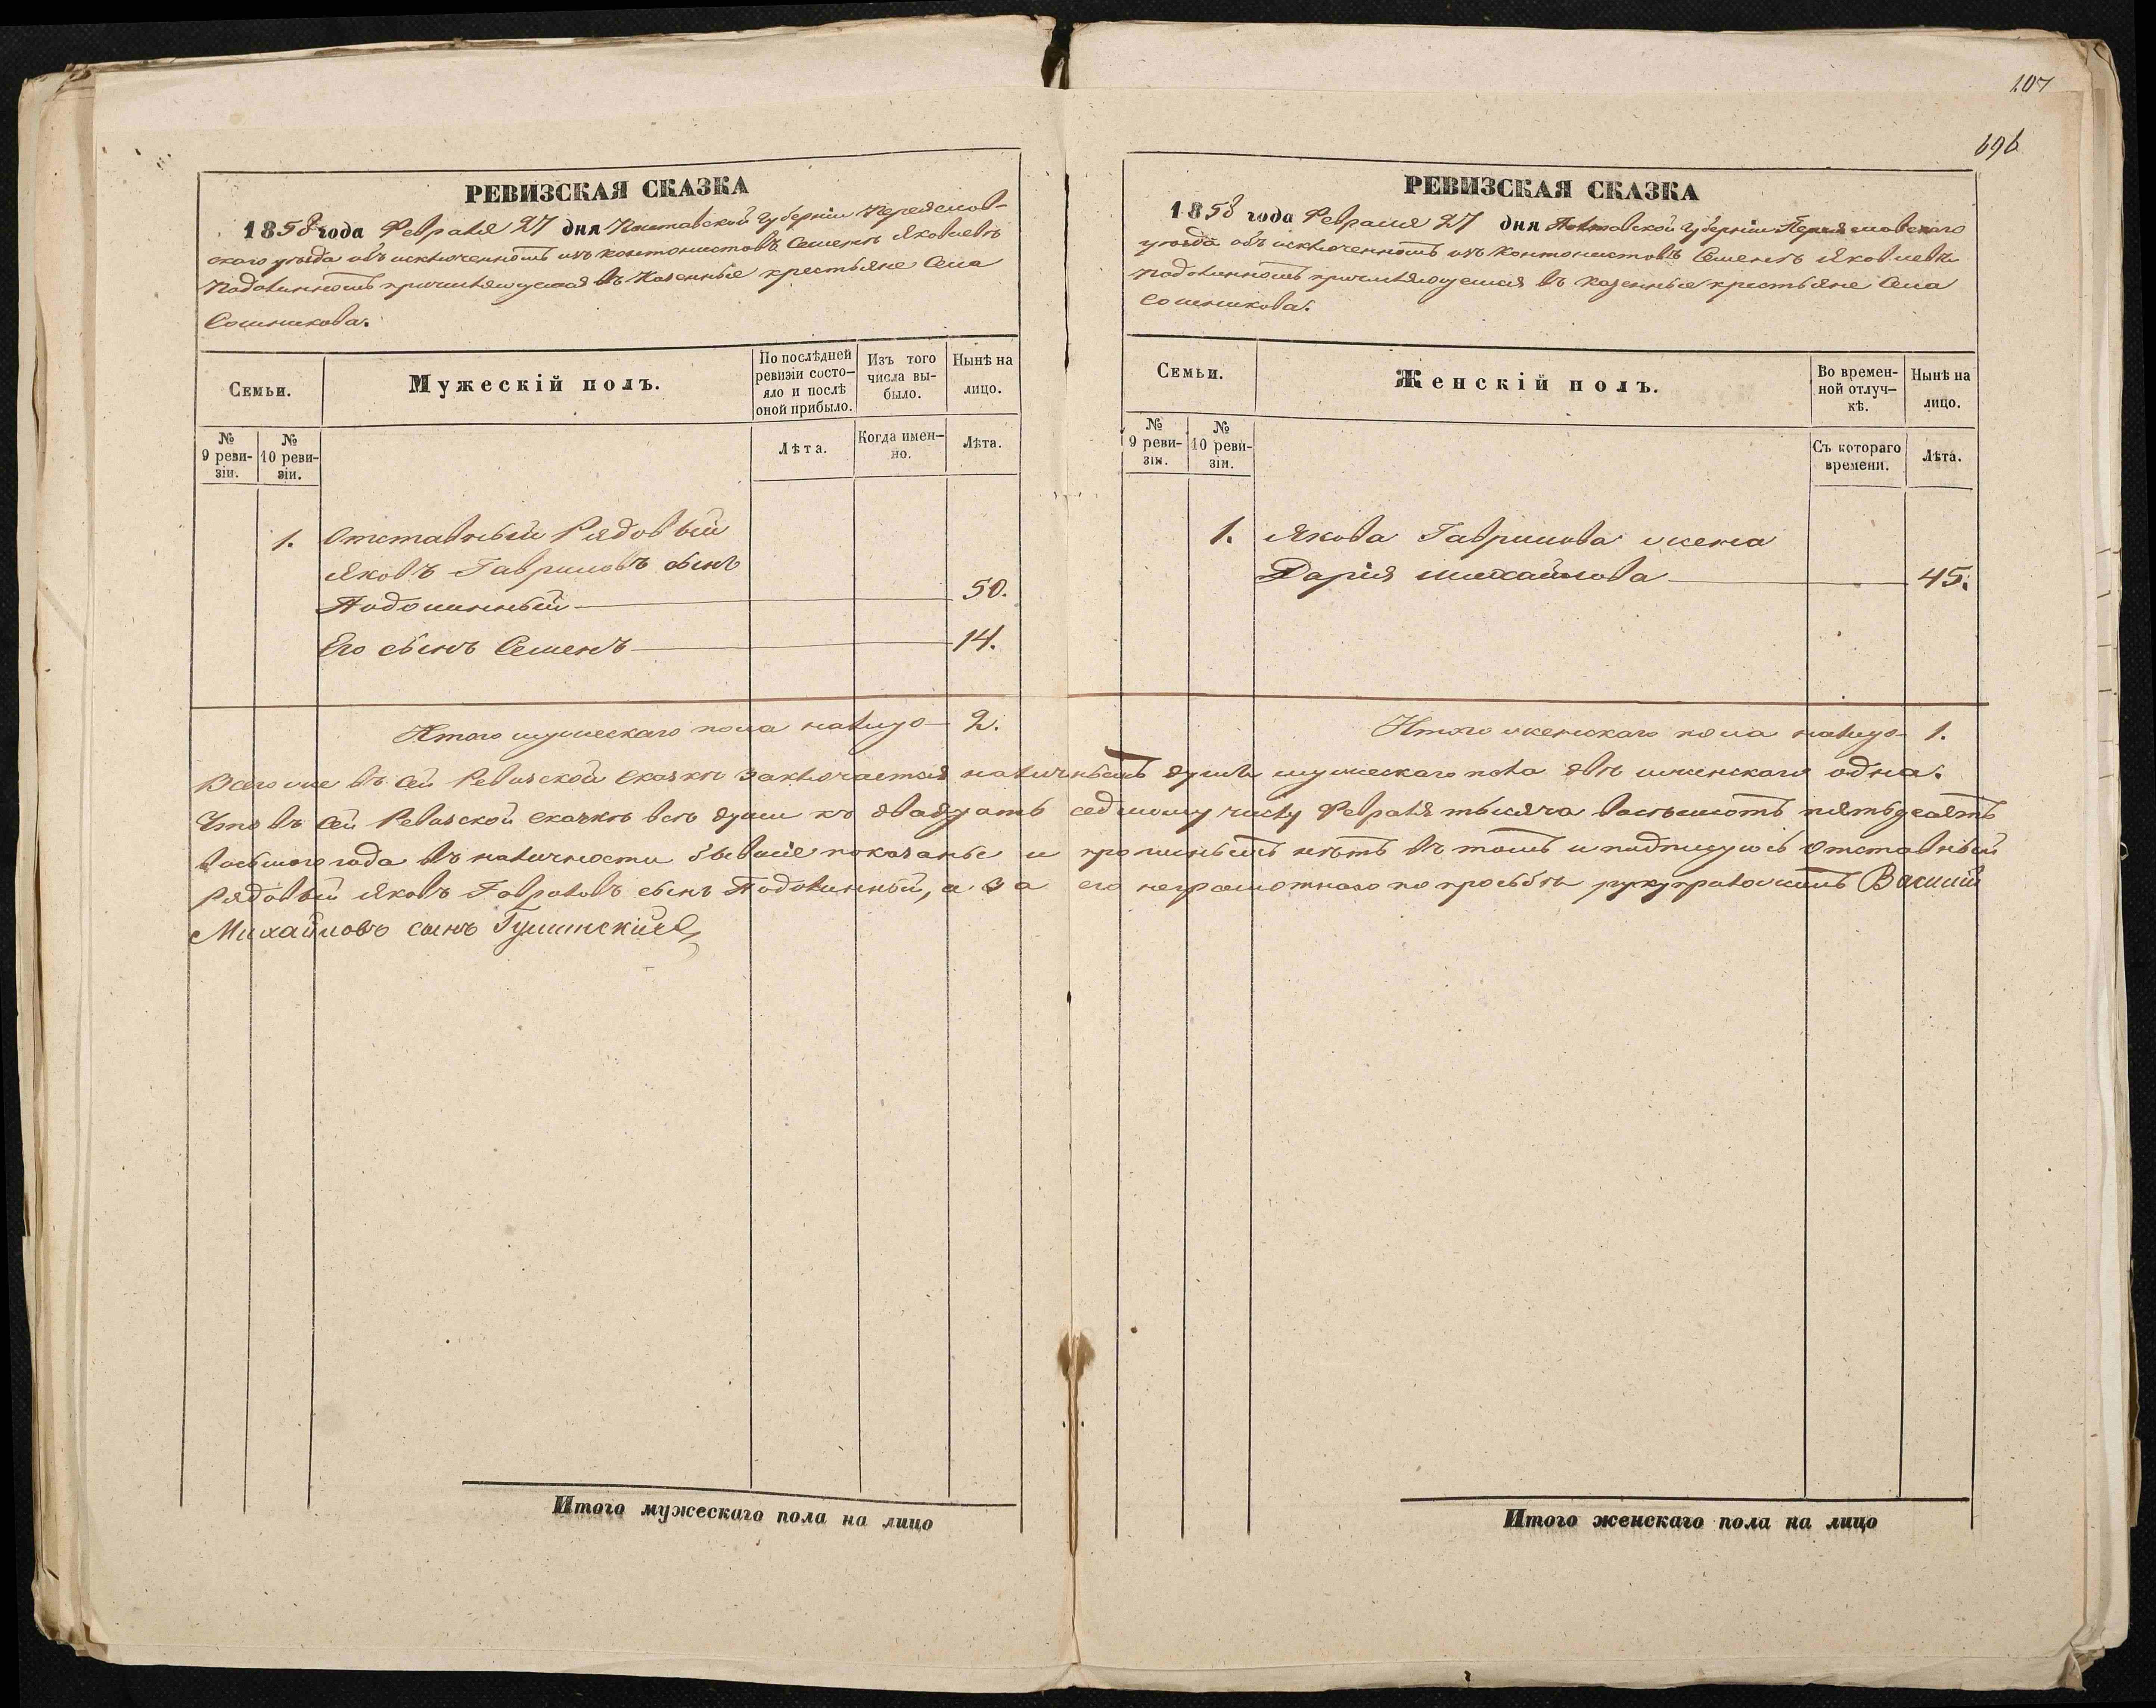 107
696
РЕВИЗСКАЯ СКАЗКА
1858 года Февраля 27 дня Полтавской Губерніи Переяслов-
скаго уѣзда объ исключенномъ изъ кантонистовъ Семенѣ Яковлевѣ
Подолинномъ причисляющемся въ Казенные крестьяне Села
Сошникова.
Семьи.
Мужескій полъ.
По послѣдней ревизіи состо-яло и послѣ оной прибыло.
Изъ того числа вы-было.
Нынѣ на лицо.
№ 9 реви-зіи.
№ 10 реви-зіи.
Лѣта.
Когда имен-но.
Лѣта.
1. Отставный Рядовый
Яковъ Гавриловъ сынъ
Подолинный 50.
Его сынъ Семенъ 14.
Итого мужескаго пола налицо 2.
РЕВИЗСКАЯ СКАЗКА
1858 года Февраля 27 дня Полтавской Губерніи Переясловскаго
уѣзда объ исключенномъ изъ кантонистовъ Семенѣ Яковлевѣ
Подолинномъ причисляющемся въ казенные крестьяне Села
Сошникова.
Семьи.
Женскій полъ.
Во времен-ной отлуч-кѣ.
Нынѣ на лицо.
№ 9 реви-зіи.
№ 10 реви-зіи.
Съ котораго времени.
Лѣта.
1. Якова Гаврилова жена
Дарія Михайлова 45.
Итого женскаго пола налицо 1.
Всего же въ сей Ревизской сказкѣ заключается наличныхъ душъ мужескаго пола двѣ женскаго одна.
Что въ сей Ревизской сказкѣ всѣ души къ двадцать седмому числу Февраля тысяча восемьсотъ пятьдесятъ
восьмого года въ наличности бывшіе показаны и прописныхъ нѣтъ въ томъ и подписуюсь Отставный
Рядовый Яковъ Гавриловъ сынъ Подолинный, а за его неграмотнаго по просьбѣ Василій
Михайловъ сынъ
Итого мужескаго пола на лицо
Итого женскаго пола на лицо